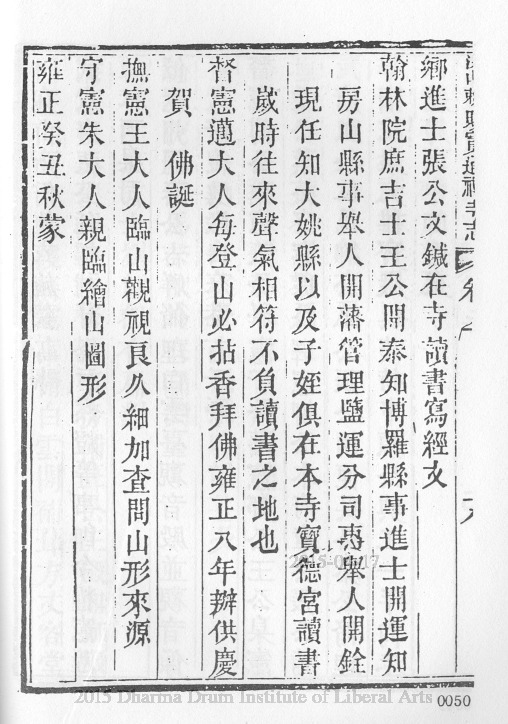 鄉進士張公文鍼在寺讀書寫經文
翰林院庶吉士王公開泰知博羅縣事進士開運知
房山縣事舉人開藩管理鹽運分司惠舉人開銓
現任知大姚縣以及子姪俱在本寺寶德宮讀書
歲時往來聲氣相符不負讀書之地也
督憲邁大人每登山必拈香拜佛雍正八年辦供慶
賀佛誕
撫憲王大人臨山觀視良久細加查問山形來源
守憲朱大人親臨繪山圖形
雍正癸丑秋蒙
2015 Dharma Drum Institute of Liberal Arts
0050